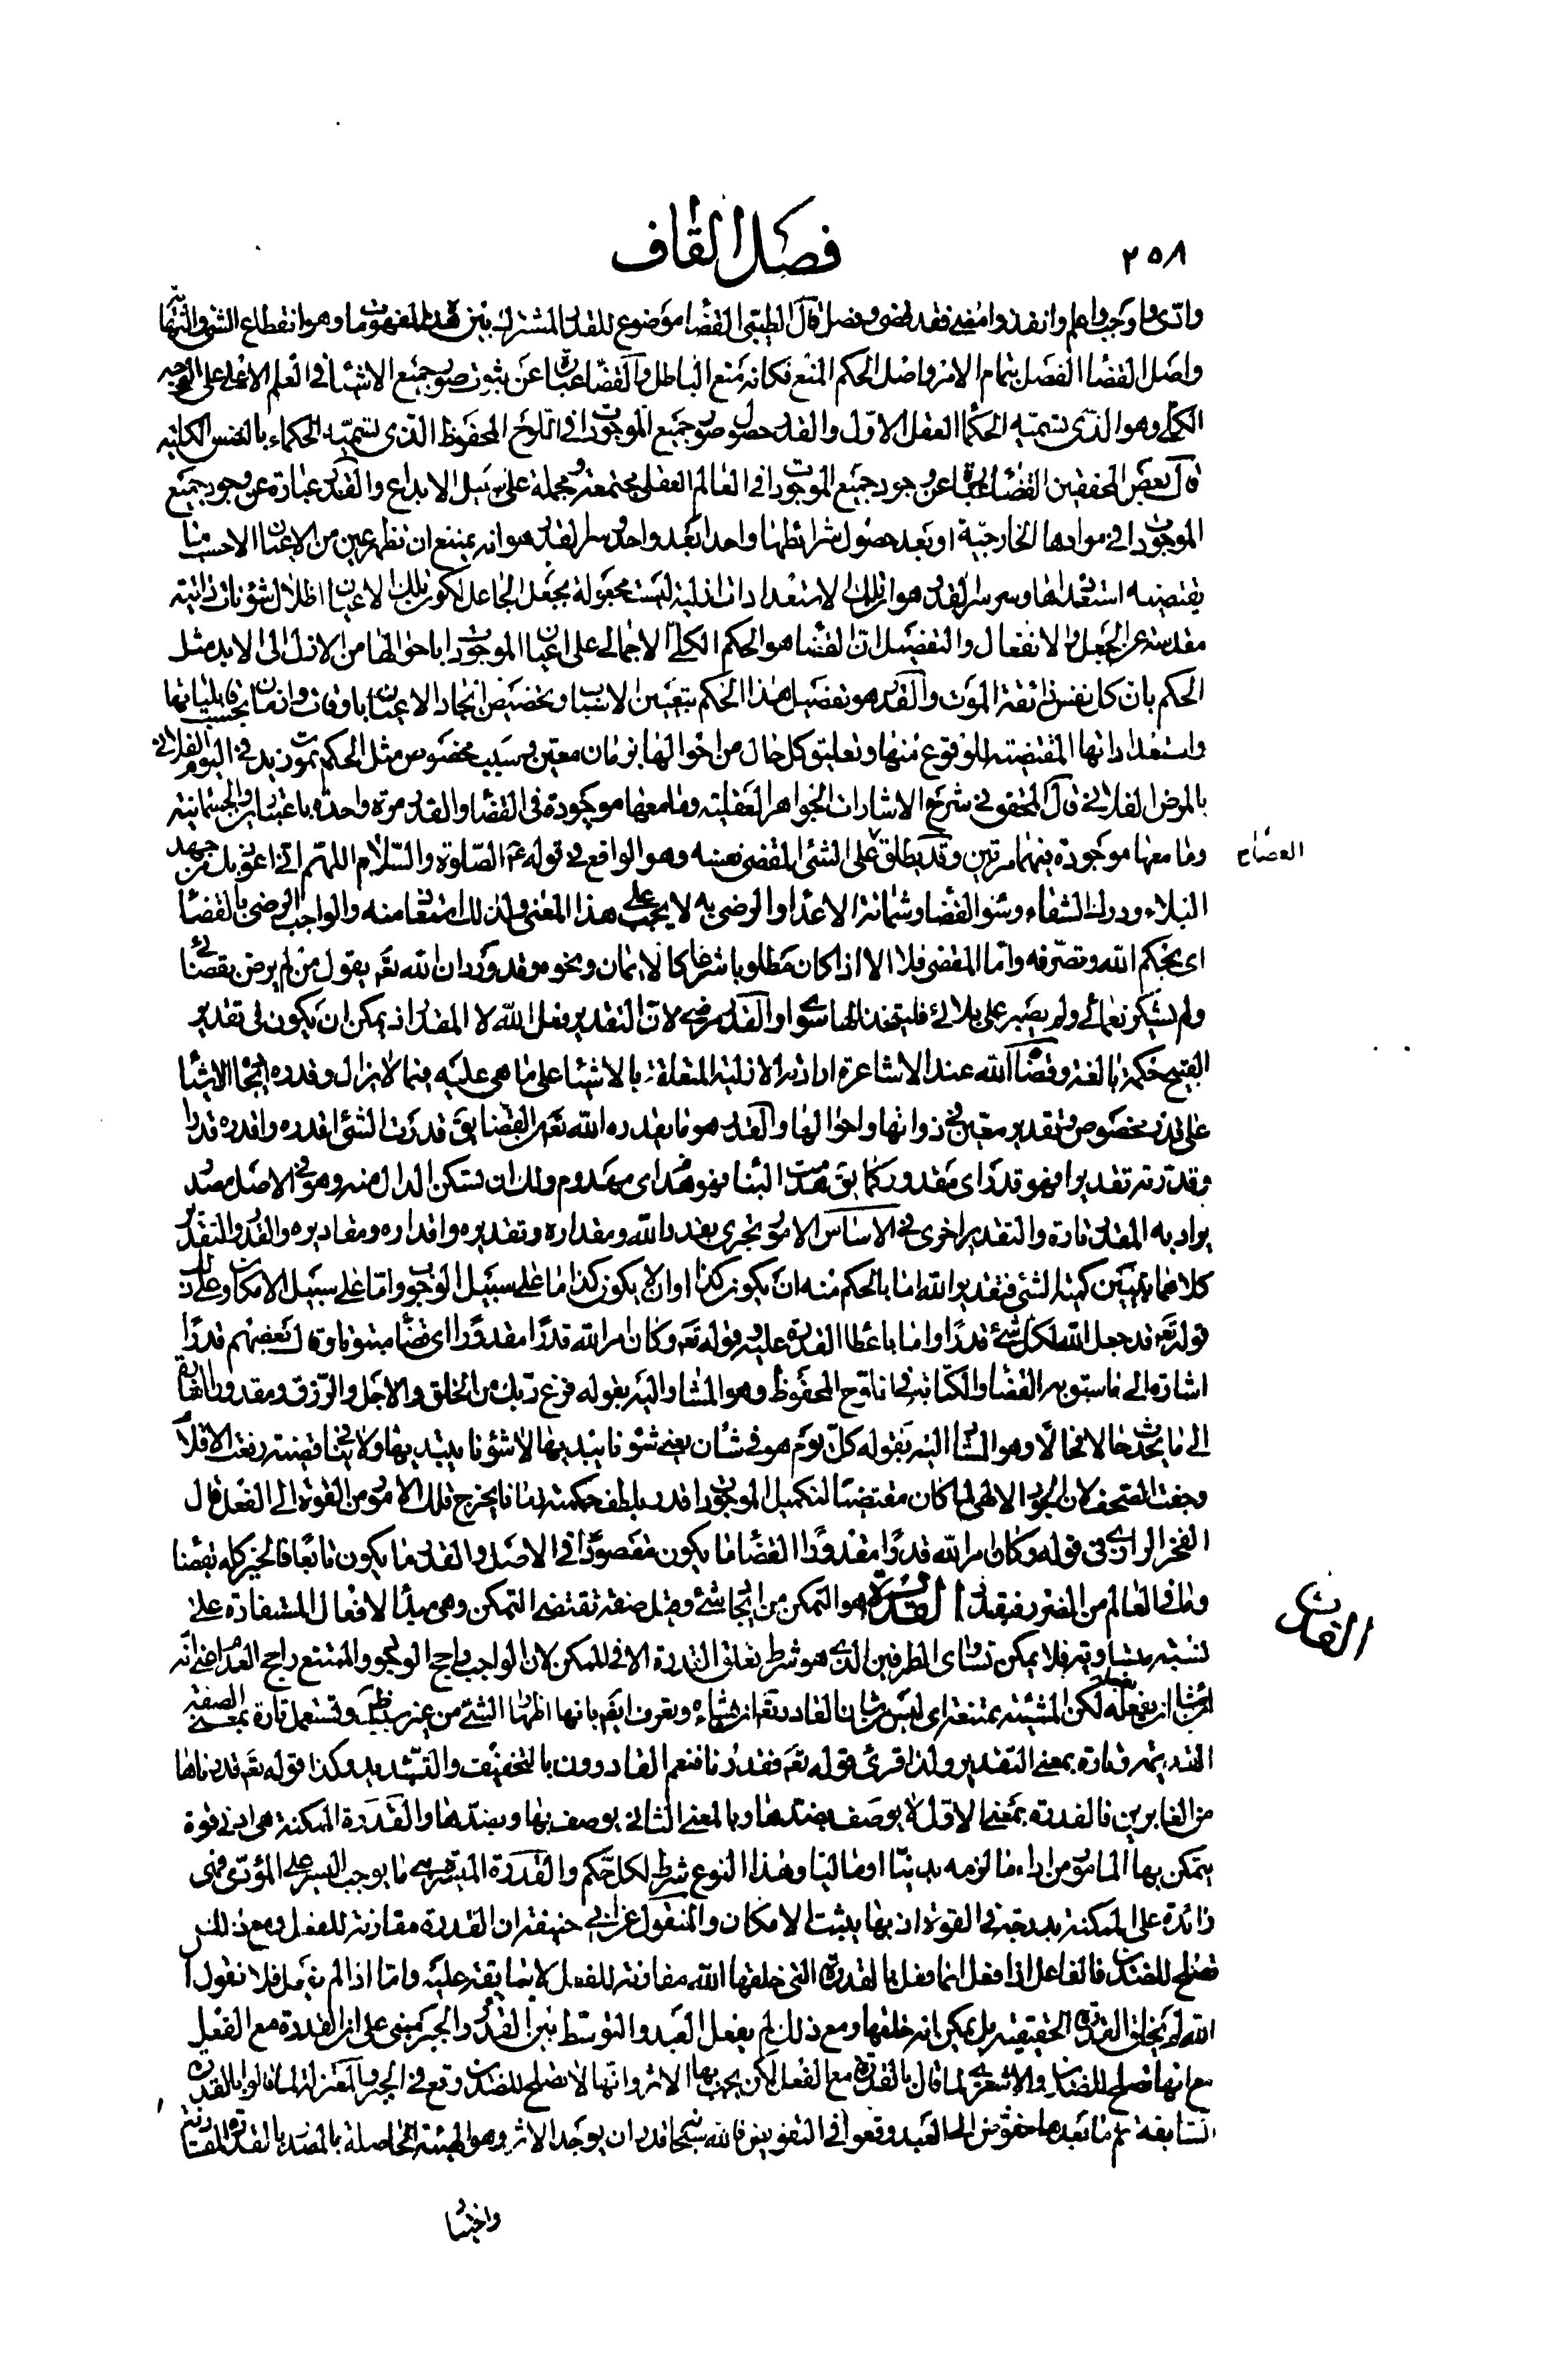 ٢٥٨
فصل القاف
وادى واوجب واعلم وانفذ وامضى فقد قضى وفصل قال الطيبى القضا موضوع للقدر المشترك بين هذه المفهومات وهو انقطاع الشئ والنهاية
واصل القضا الفصل بتمام الامر واصل الحكم المنع فكانه منع الباطل والقضا عبارة عن ثبوت صور جميع الاشيا فى العلم الاعلى على الوجه
الكلى وهو الذى تسميه الحكما العقل الاول والقدر حصول صور جميع الموجودات فى اللوح المحفوظ الذى تسميه الحكماء بالنفس الكلية
قال بعض المحققين القضا عبارة عن وجود جميع الموجودات فى العالم العقلى مجتمعة ومجملة على سبيل الابداع والقدر عبارة عن وجود جميع
الموجودات فى موادها الخارجية او بعد حصول شرائطها واحدا بعد واحد وسر القدر هو انه يمتنع ان تظهر عين من الاعيان الا حسب ما
يقتضيه استعدادها وسر سر القدر هو ان تلك الاستعدادات ازلية ليست مجعولة بجعل الجاعل لكون تلك الاعيان اظلال شؤنات ذاتية
مقدسة عن الجعل والانفعال والتفصيل ان القضا هو الحكم الكلى الاجمالى على اعيان الموجودات باحوالها من الازل الى الابد مثل
الحكم بان كل نفس ذائقة الموت والقدر هو تفصيل هذا الحكم بتعيين الاسباب وتخصيص ايجاد الاعيان باوقات وازمان بحسب قابلياتها
واستعداداتها المقتضية للوقوع منها وتعليق كل حال من احوالها بزمان معين وسبب مخصوص مثل الحكم بموت زيد فى اليوم الفلانى
بالمرض الفلانى قال المحقق فى شرح الاشارات الجواهر العقلية وما معها موجودة فى القضا والقدر مرة واحدة باعتبارين والجسمانية
وما معها موجودة فيهما مرتين وقد يطلق على الشئ المقضى نفسه وهو الواقع فى قوله عم الصلوة والسلام اللهم انى اعوذ بك من جهد
البلاء ودرك الشقاء وسوء القضا وشماتة الاعدا والرضى به لا يجب على هذا المعنى ولذلك استعاذ منه والواجب الرضى بالقضا
اى بحكم الله وتصرفه واما المقضى فلا الا اذا كان مطلوبا شرعا كالايمان ونحوه وقد ورد ان الله تعم يقول من لم يرض بقضائى
ولم يشكر نعمائى ولم يصبر على بلائى فليتخذ الها سوائى والقدر مرضى لان التقدير فعل الله لا المقدر اذ يمكن ان يكون فى تقدير
القبيح حكمة بالغة وقضا الله عند الاشاعرة ارادته الازلية المتعلقة بالاشيا على ما هى عليه فيما لا يزال وقدره ايجاد الاشيا
على قدر مخصوص وتقدير معين فى ذواتها واحوالها والقدر هو ما يقدره الله تعم من القضا يق قدرت الشئ اقدره واقدره قدرا
وقدرته تقديرا فهو قدر اى مقدور كما يق هدمت البنا فهو هدم اى مهدوم ولك ان تسكن الدال منه وهو فى الاصل مصدر
يراد به المقدر تارة والتقدير اخرى فى الاساس الامور تجرى بقدر الله ومقداره وتقديره واقداره ومقاديره والقدر والتقدير
كلاهما تبيين كمية الشئ فتقدير الله اما بالحكم منه ان يكون كذا او لا يكون كذا اما على سبيل الوجوب واما على سبيل الامكان وعلى ذلك
قوله تعم قد جعل الله لكل شئ قدرا واما باعطا القدرة عليه وقوله تعم وكان امر الله قدرا مقدورا اى قضا مبتوتا وقال بعضهم قدرا
اشارة الى ما سبق به القضا والكتابة فى اللوح المحفوظ وهو المشار اليه بقوله فرغ ربك من الخلق والاجل والرزق ومقدورا اشارة
الى ما يحدث حالا فحالا وهو المشار اليه بقوله كل يوم هو فى شان يعنى شؤنا يبديها لا شؤنا يبتديها ولا ينافى قضية رفعت الاقلام
وجفت الصحف لان الجود الالهى لما كان مقتضيا لتكميل الموجودات قدر بلطف حكمته زمانا يخرج تلك الامور من القوة الى الفعل قال
الفخر الرازى فى قوله وكان امر الله قدرا مقدورا القضا ما يكون مقصودا فى الاصل والقدر ما يكون تابعا فالخير كله بقضا
وما فى العالم من الضر فبقدر القدرة هو التمكن من ايجاد شئ وقيل صفة تقتضى التمكن وهى مبدأ الافعال المستفادة على
نسبة متساوية فلا يمكن تساوى الطرفين الذى هو شرط تعلق القدرة الا فى الممكن لان الواجب راجح الوجود والممتنع راجح العدم اعنى انه
ان شا ان يفعله لكن المشيئة ممتنعة اى ليس من شان القادر تعم ان يشاءه وتعرف ايضم بانها اظهار الشئ من غير سبب ظاهر وتستعمل تارة بمعنى الصفة
القديمة وتارة بمعنى التقدير ولذا قرئ قوله تعم فقدرنا فنعم القادرون بالتخفيف والتشديد وكذا قوله تعم قدرناها
من الغابرين فالقدرة بمعنى الاول لا يوصف بضدها وبالمعنى الثانى يوصف بها وبضدها والقدرة الممكنة هى ادنى قوة
يتمكن بها المامور من اداء ما لزمه بدنيا او ماليا وهذا النوع شرط لكل حكم والقدرة الميسرة هى ما يوجب اليسر على المؤدى فهى
زائدة على الممكنة بدرجة فى القوة اذ بها يثبت الامكان والمنقول عن ابى حنيفة ان القدرة مقارنة للفعل ومع ذلك
تصلح للضدين فالفاعل اذا فعل انما فعل بالقدرة التى خلقها الله مقارنة للفعل لا سابقة عليه واما اذا لم يفعل فلا نقول ان
الله لم يخلق القدرة الحقيقية بل يمكن انه خلقها ومع ذلك لم يفعل العبد والتوسط بين القدر والجبر مبنى على ان القدرة مع الفعل
مع انها تصلح للضدين والاشعرى لما قال بالقدرة مع الفعل لكن يجب بها الاثر وانها لا تصلح للضدين وقع فى الجبر والمعتزلة لما قالوا بالقدرة
السابقة ثم ما بعدها مفوض الى العبد وقعوا فى التفويض فالله سبحانه قدر ان يوجد الاثر وهو الهيئة الحاصلة بالمصدر بالقدرة المقارنة
واختيا